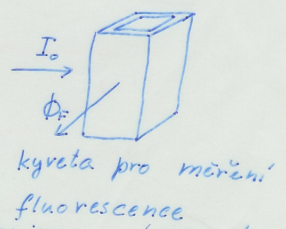 I₀
Φ_F
kyveta pro měření
fluorescence